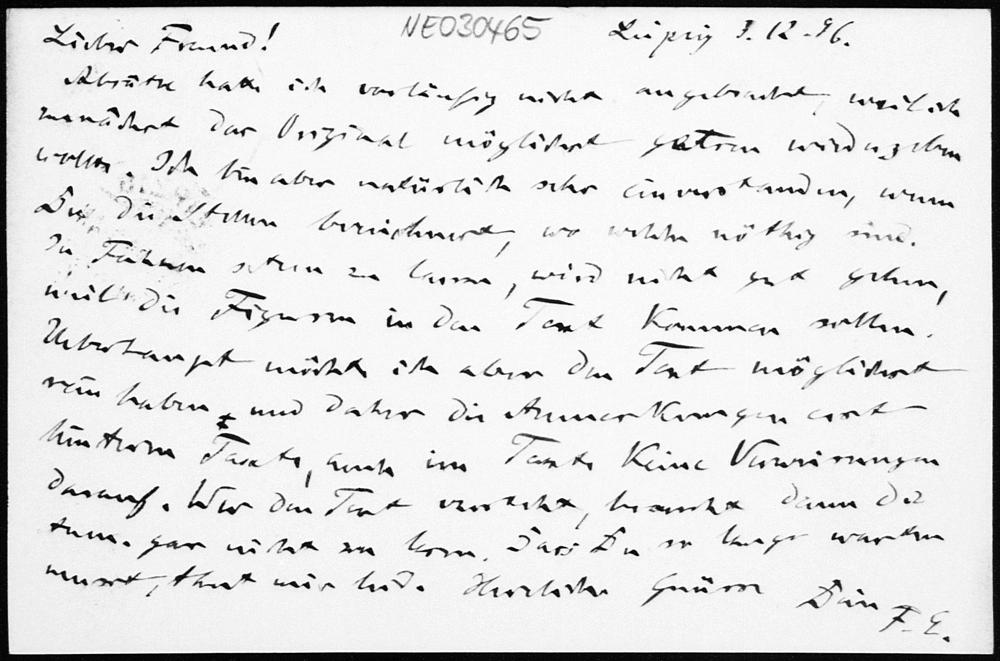 NEO30465
Lieber Freund! Leipzig 3.12.96.
Absätze hatte ich vorläufig nicht angebracht, weil ich
zunächst das Original möglichst getreu wiedergeben
wollte. Ich bin aber natürlich sehr einverstanden, wenn
Du die Stellen bezeichnest, wo welche nöthig sind.
In Fahnen setzen zu lassen, wird nicht gut gehen,
weil die Figuren in den Text kommen sollen.
Ueberhaupt möchte ich aber den Text möglichst
rein haben und daher die Anmerkungen erst
hinterm Texte, auch im Texte keine Verweisungen
darauf. Wer den Text versteht, braucht dann die
gar nicht zu lesen. Dass Du so lange warten
musst, thut mir leid. Herzliche Grüsse Dein F. E.